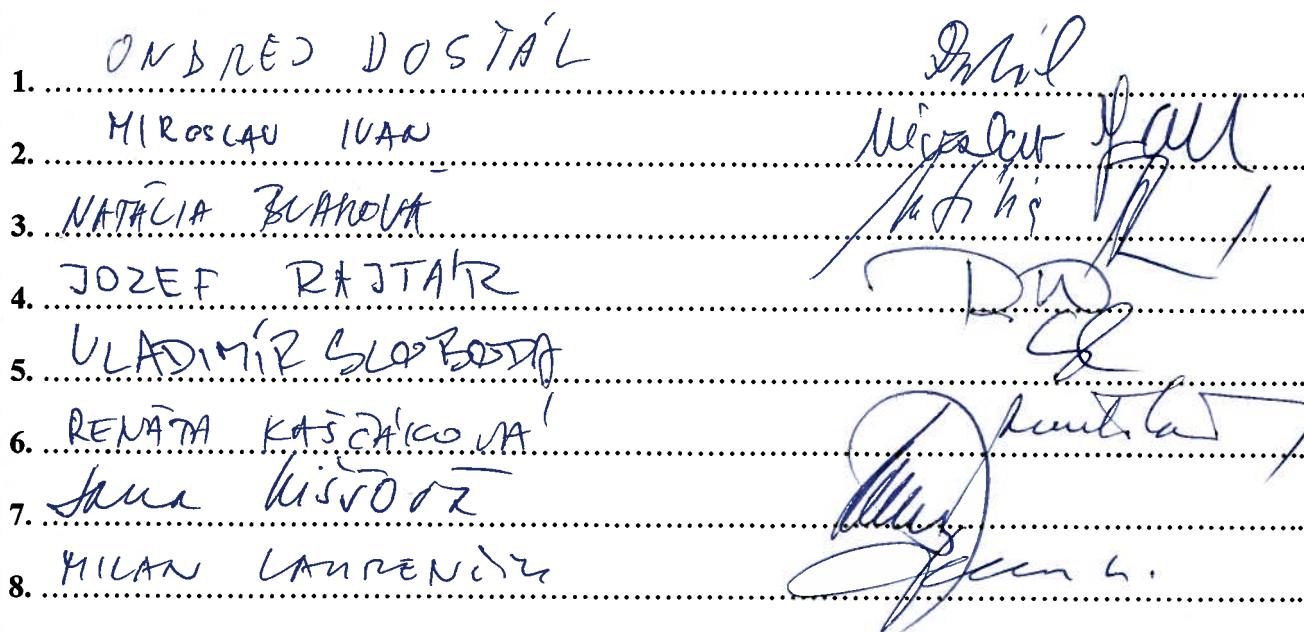 1. ONDREJ DOSTÁL
2. MIROSLAV IVAN Miroslav Ivan
3. NATÁLIA BLAHOVÁ
4. JOZEF RAJTÁR
5. VLADIMÍR SLOBODA
6. RENÁTA KAŠČÁKOVÁ
7. Jana KIŠŠOVÁ
8. MILAN LAURENČÍK